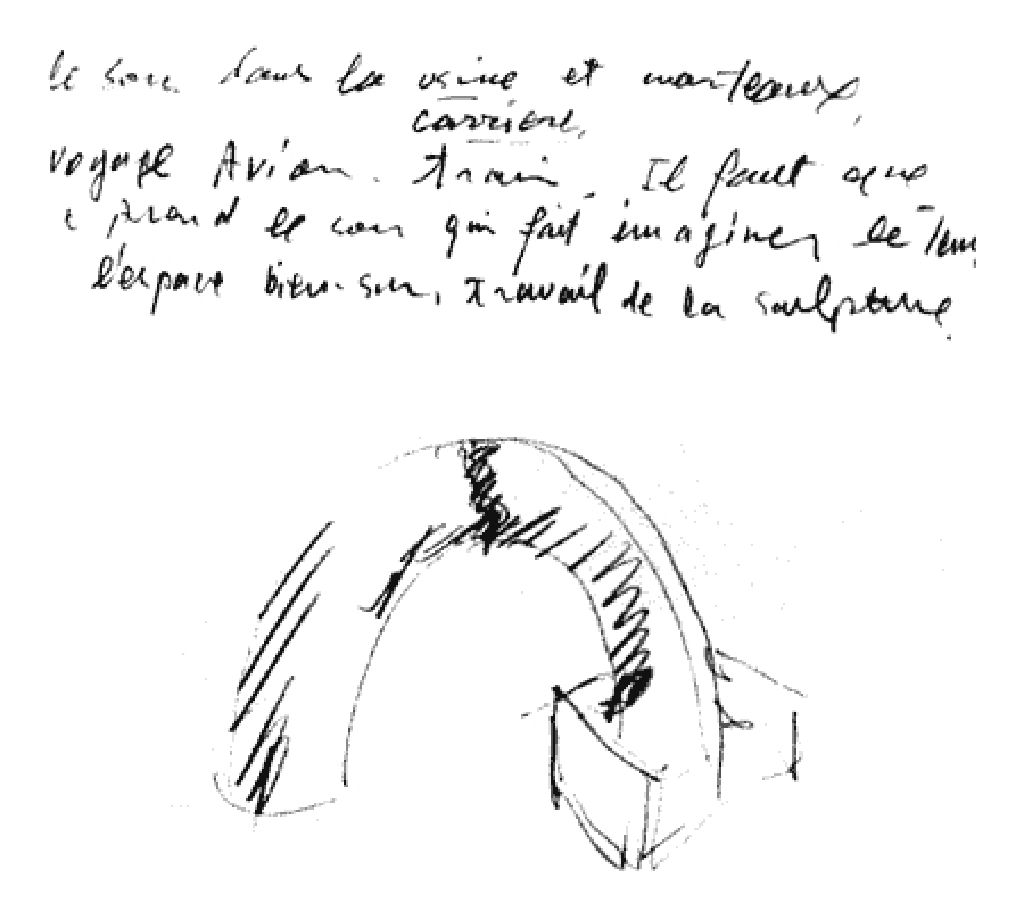 le son dans la usine et marteaux,
carrière,
voyage Avion. train. Il faut que
prend le son qui fait imaginer le
l'espace bien-sur, travail de la sculpture.